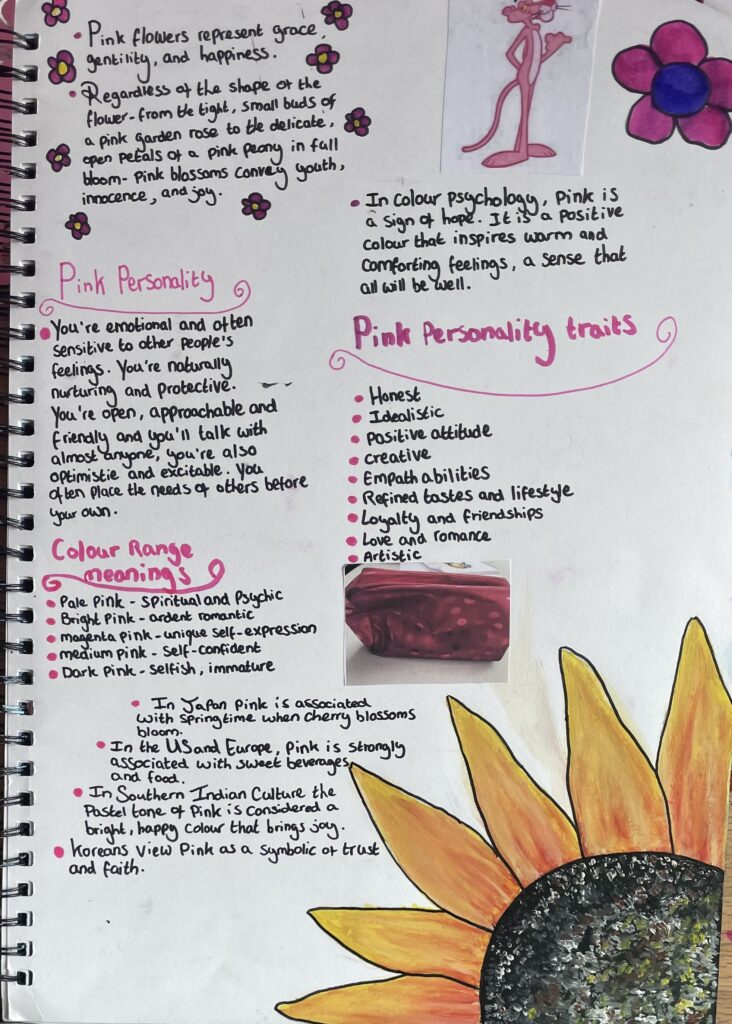 Pink flowers represent grace,
gentility, and happiness.
Regardless of the shape of the
flower-from the tight, small buds of
a pink garden rose to the delicate,
open petals of a pink peony in full
bloom- Pink blossoms convey youth,
innocence, and joy.
In Colour Psychology, Pink is
a sign of hope. It is a Positive
colour that inspires warm and
comforting feelings, a sense that
all will be well.
Pink Personality
You're emotional and often
sensitive to other People's
feelings. You're naturally
nurturing and protective.
You're open, approachable and
friendly and you'll talk with
almost anyone, you're also
optimistic and excitable. You
often Place the needs of others before
your own.
Pink Personality traits
Honest
Idealistic
Positive attitude
creative
Empath abilities
Refined tastes and lifestyle
Loyalty and friendships
Love and romance
Artistic
Colour Range
meanings
Pale Pink - Spiritual and Psychic
Bright Pink - ardent romantic
magenta Pink - unique self-expression
medium Pink - Self-confident
Dark Pink - Selfish, immature
In Japan Pink is associated
with springtime when cherry blossoms
bloom.
In the US and Europe, Pink is strongly
associated with sweet beverages
and food.
In Southern Indian Culture the
Pastel tone of Pink is considered a
bright, happy colour that brings joy.
Koreans View Pink as a symbolic of trust
and faith.